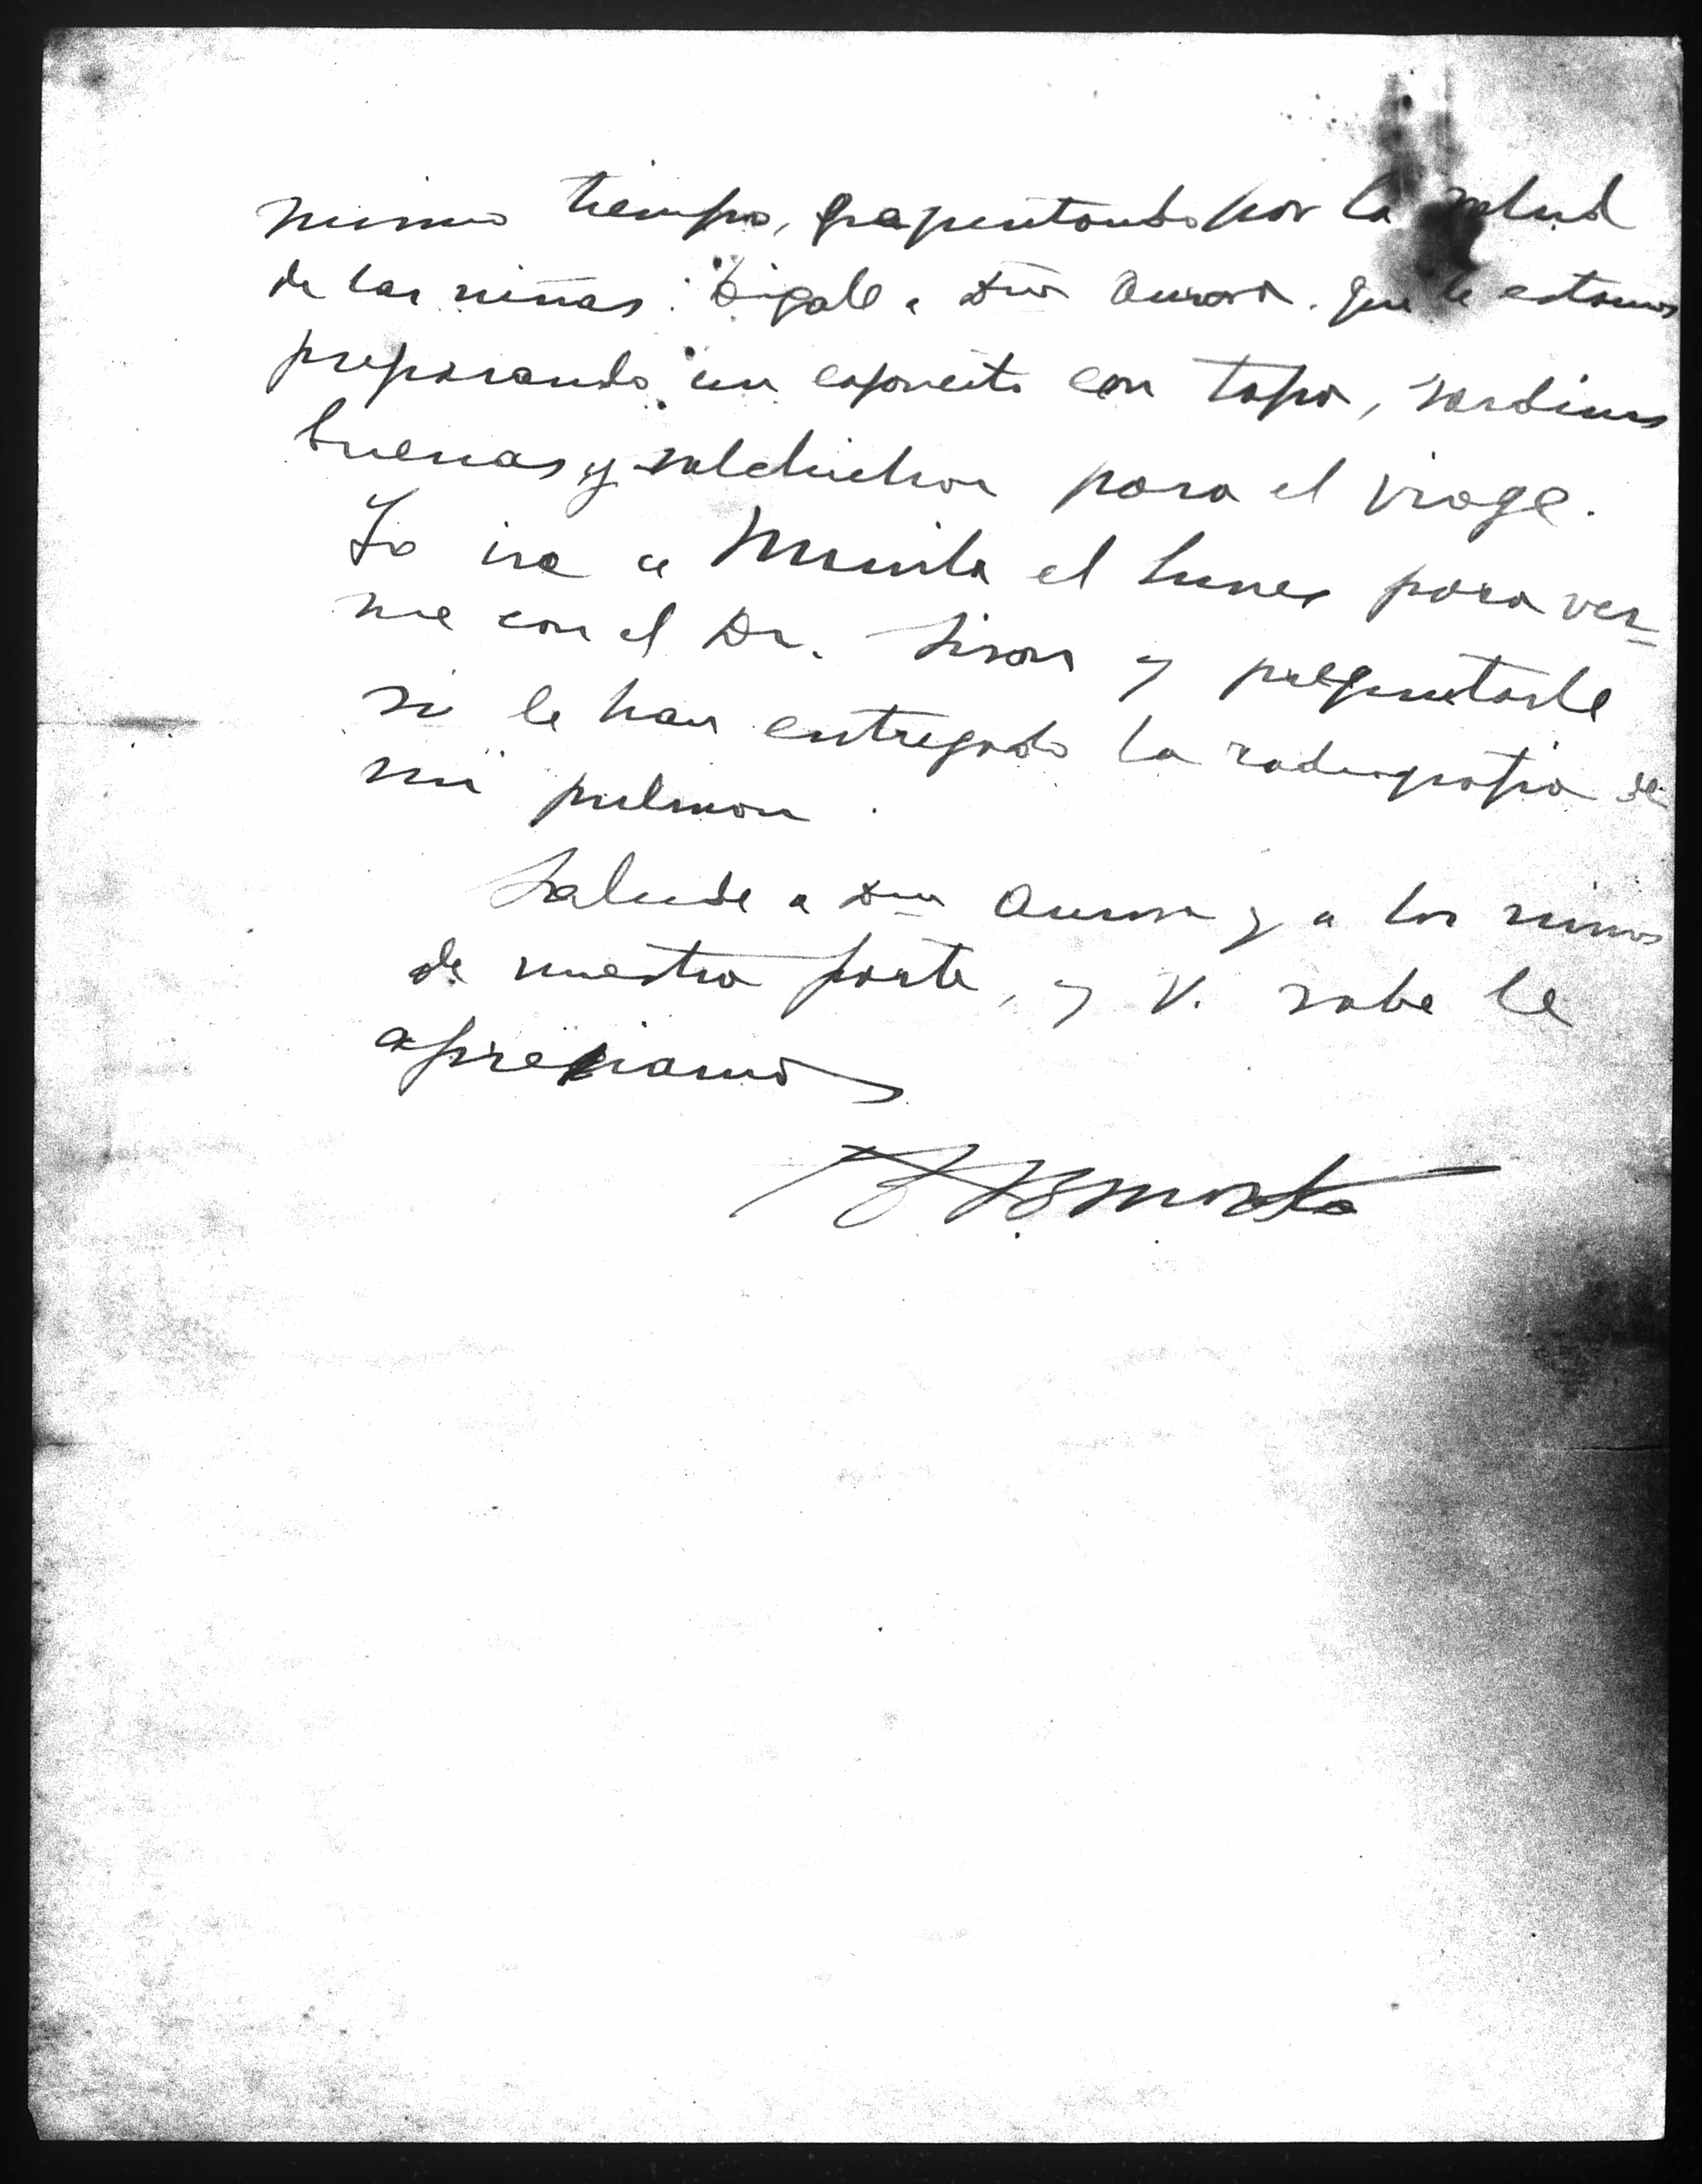 mismo tiempo, preguntando por la salud
de las niñas. Digale a Dña Aurora. que le estamos
preparando un cajoncito con tapa, sardinas
buenas y salchichon para el viage.
Yo ire a Manila el lunes para ver-
me con el Dr. Sison y preguntarle
si le han entregado la radiografia de
mi pulmon.
Salude a Dña Aurora y a los niños
de nuestra parte, y V. sabe le
apreciamos